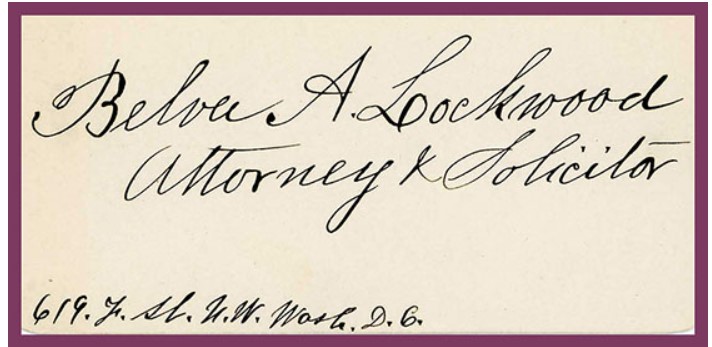 Belva A. Lockwood
Attorney & Solicitor
619. F. St. N.W. Wash. D.C.